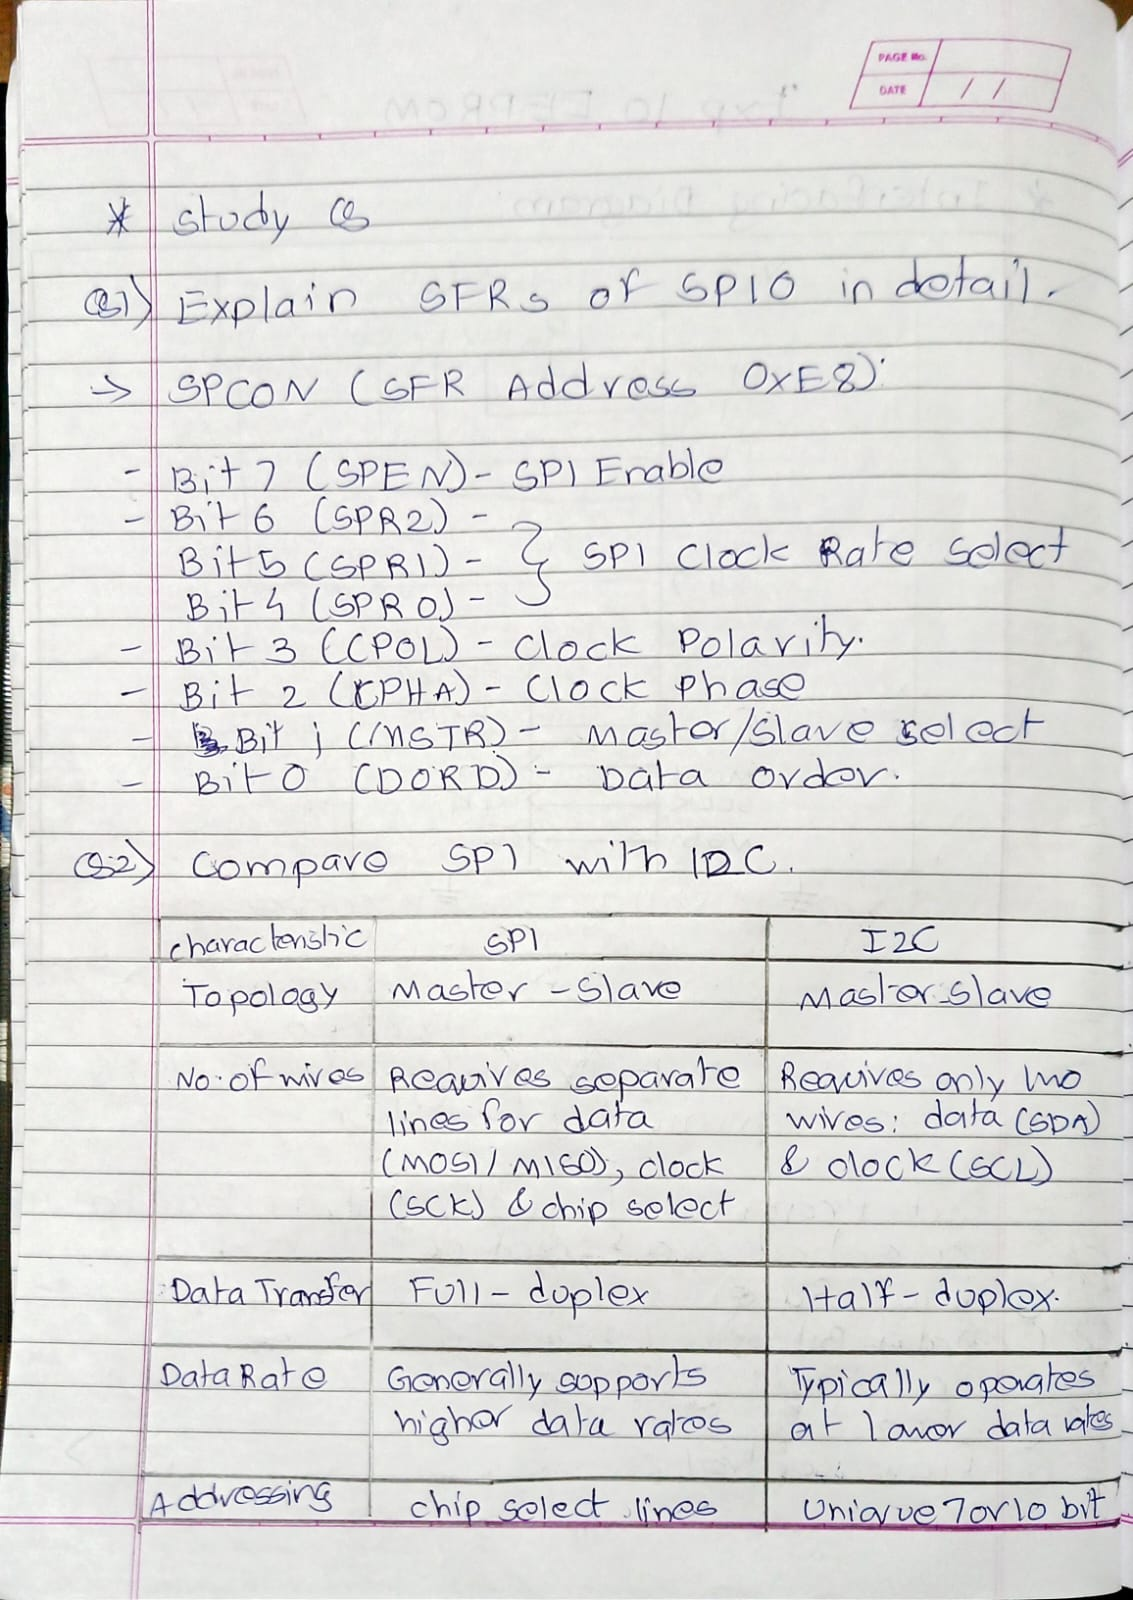 PAGE No.
DATE / /
* Study Qs
Q1) Explain SFRs of SPI0 in detail.
→ SPCON (SFR Address 0xE8):
- Bit 7 (SPEN) - SPI Enable
- Bit 6 (SPR2) -
Bit 5 (SPR1) - } SPI Clock Rate Select
Bit 4 (SPR0) -
- Bit 3 (CPOL) - Clock Polarity.
- Bit 2 (CPHA) - Clock Phase
- Bit 1 (MSTR) - Master/Slave select
- Bit 0 (DORD) - Data order.
Q2) Compare SPI with I2C.
Characteristic SPI I2C
Topology Master - Slave Master-Slave
No. of wires Requires separate Requires only two
lines for data wires: data (SDA)
(MOSI/MISO), clock & clock (SCL)
(SCK) & chip select
Data Transfer Full - duplex Half - duplex.
Data Rate Generally supports Typically operates
higher data rates at lower data rates
Addressing chip select lines Unique 7 or 10 bit